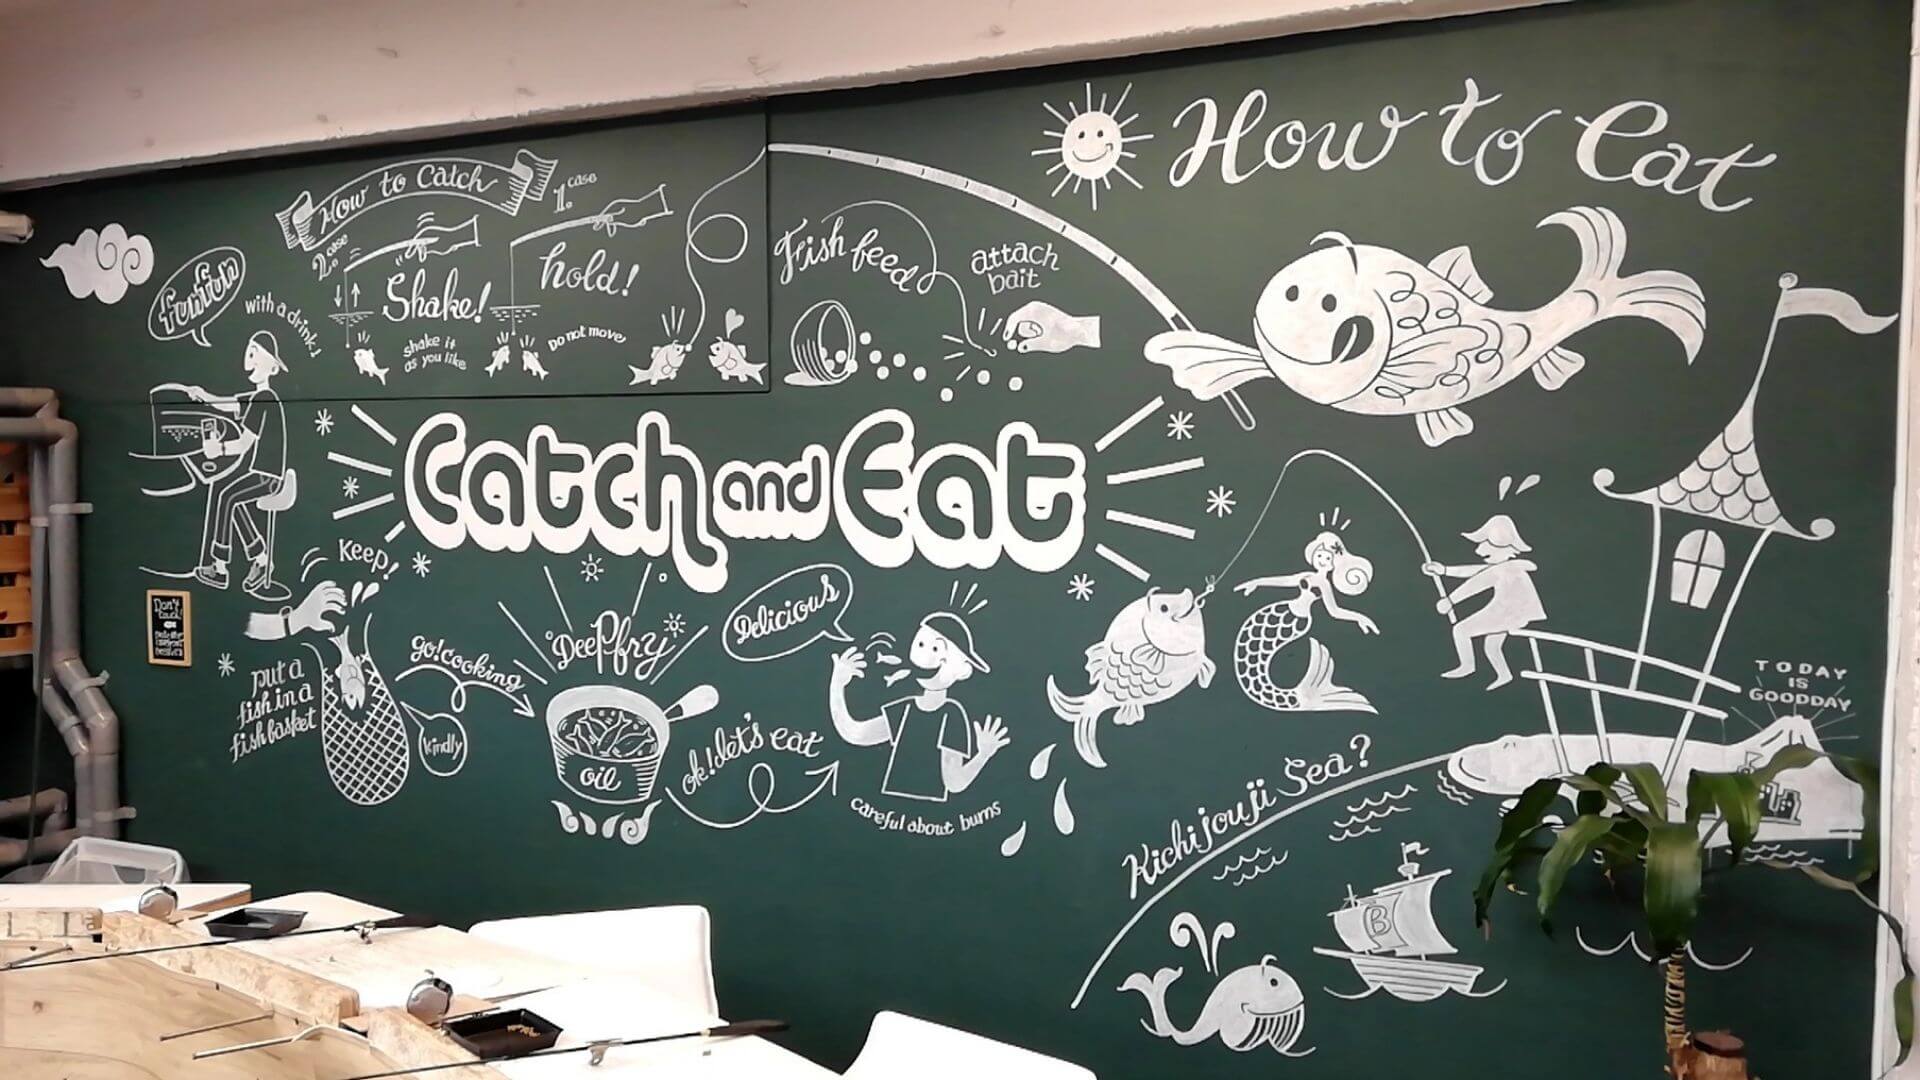 How to Eat
How to Catch
case
1.
hold!
Do not move
case
2.
Shake!
shake it
as you like
Fish feed
attach
bait
funfun
with a drink!
Catch and Eat
Keep!
put a
fish in a
fish basket
kindly
go! cooking
DeePfry
oil
ok! let's eat
Delicious
careful about burns
Kichijouji Sea?
TODAY
IS
GOODDAY
B
Don't
touch!